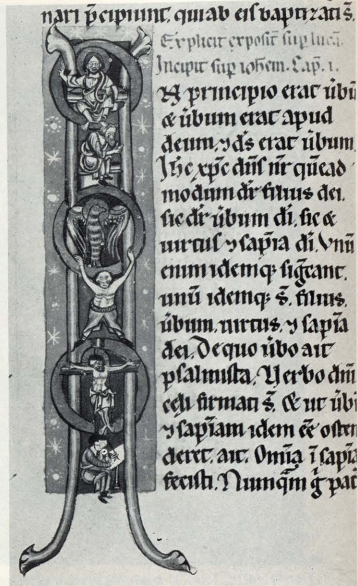 nari p̄cipiunt. quia ab eis baptizati s̄.
Explicit exposit̄ sup lucā.
Incipit sup ioh̄em. Cap. i.
N principio erat ūbū
& ūbum erat apud
deum. ⁊ d̄s erat ūbum.
Ih̄c xp̄c dn̄s nr̄ quēad
modum dr̄ filius dei.
sic dr̄ ūbum dī. sic &
uirtus ⁊ sapīa dī. Vnū
enim idemq; sig̅cant.
unū idemq; s̄. filius.
ūbum. uirtus. ⁊ sapīa
dei. De quo ūbo ait
psalmista. Verbo dn̄i
celi firmati s̄. Et ut ūbū
⁊ sapīam idem eē osten
deret. ait. Om̄ia ī sapīa
fecisti. Numq̄m ḡ pat